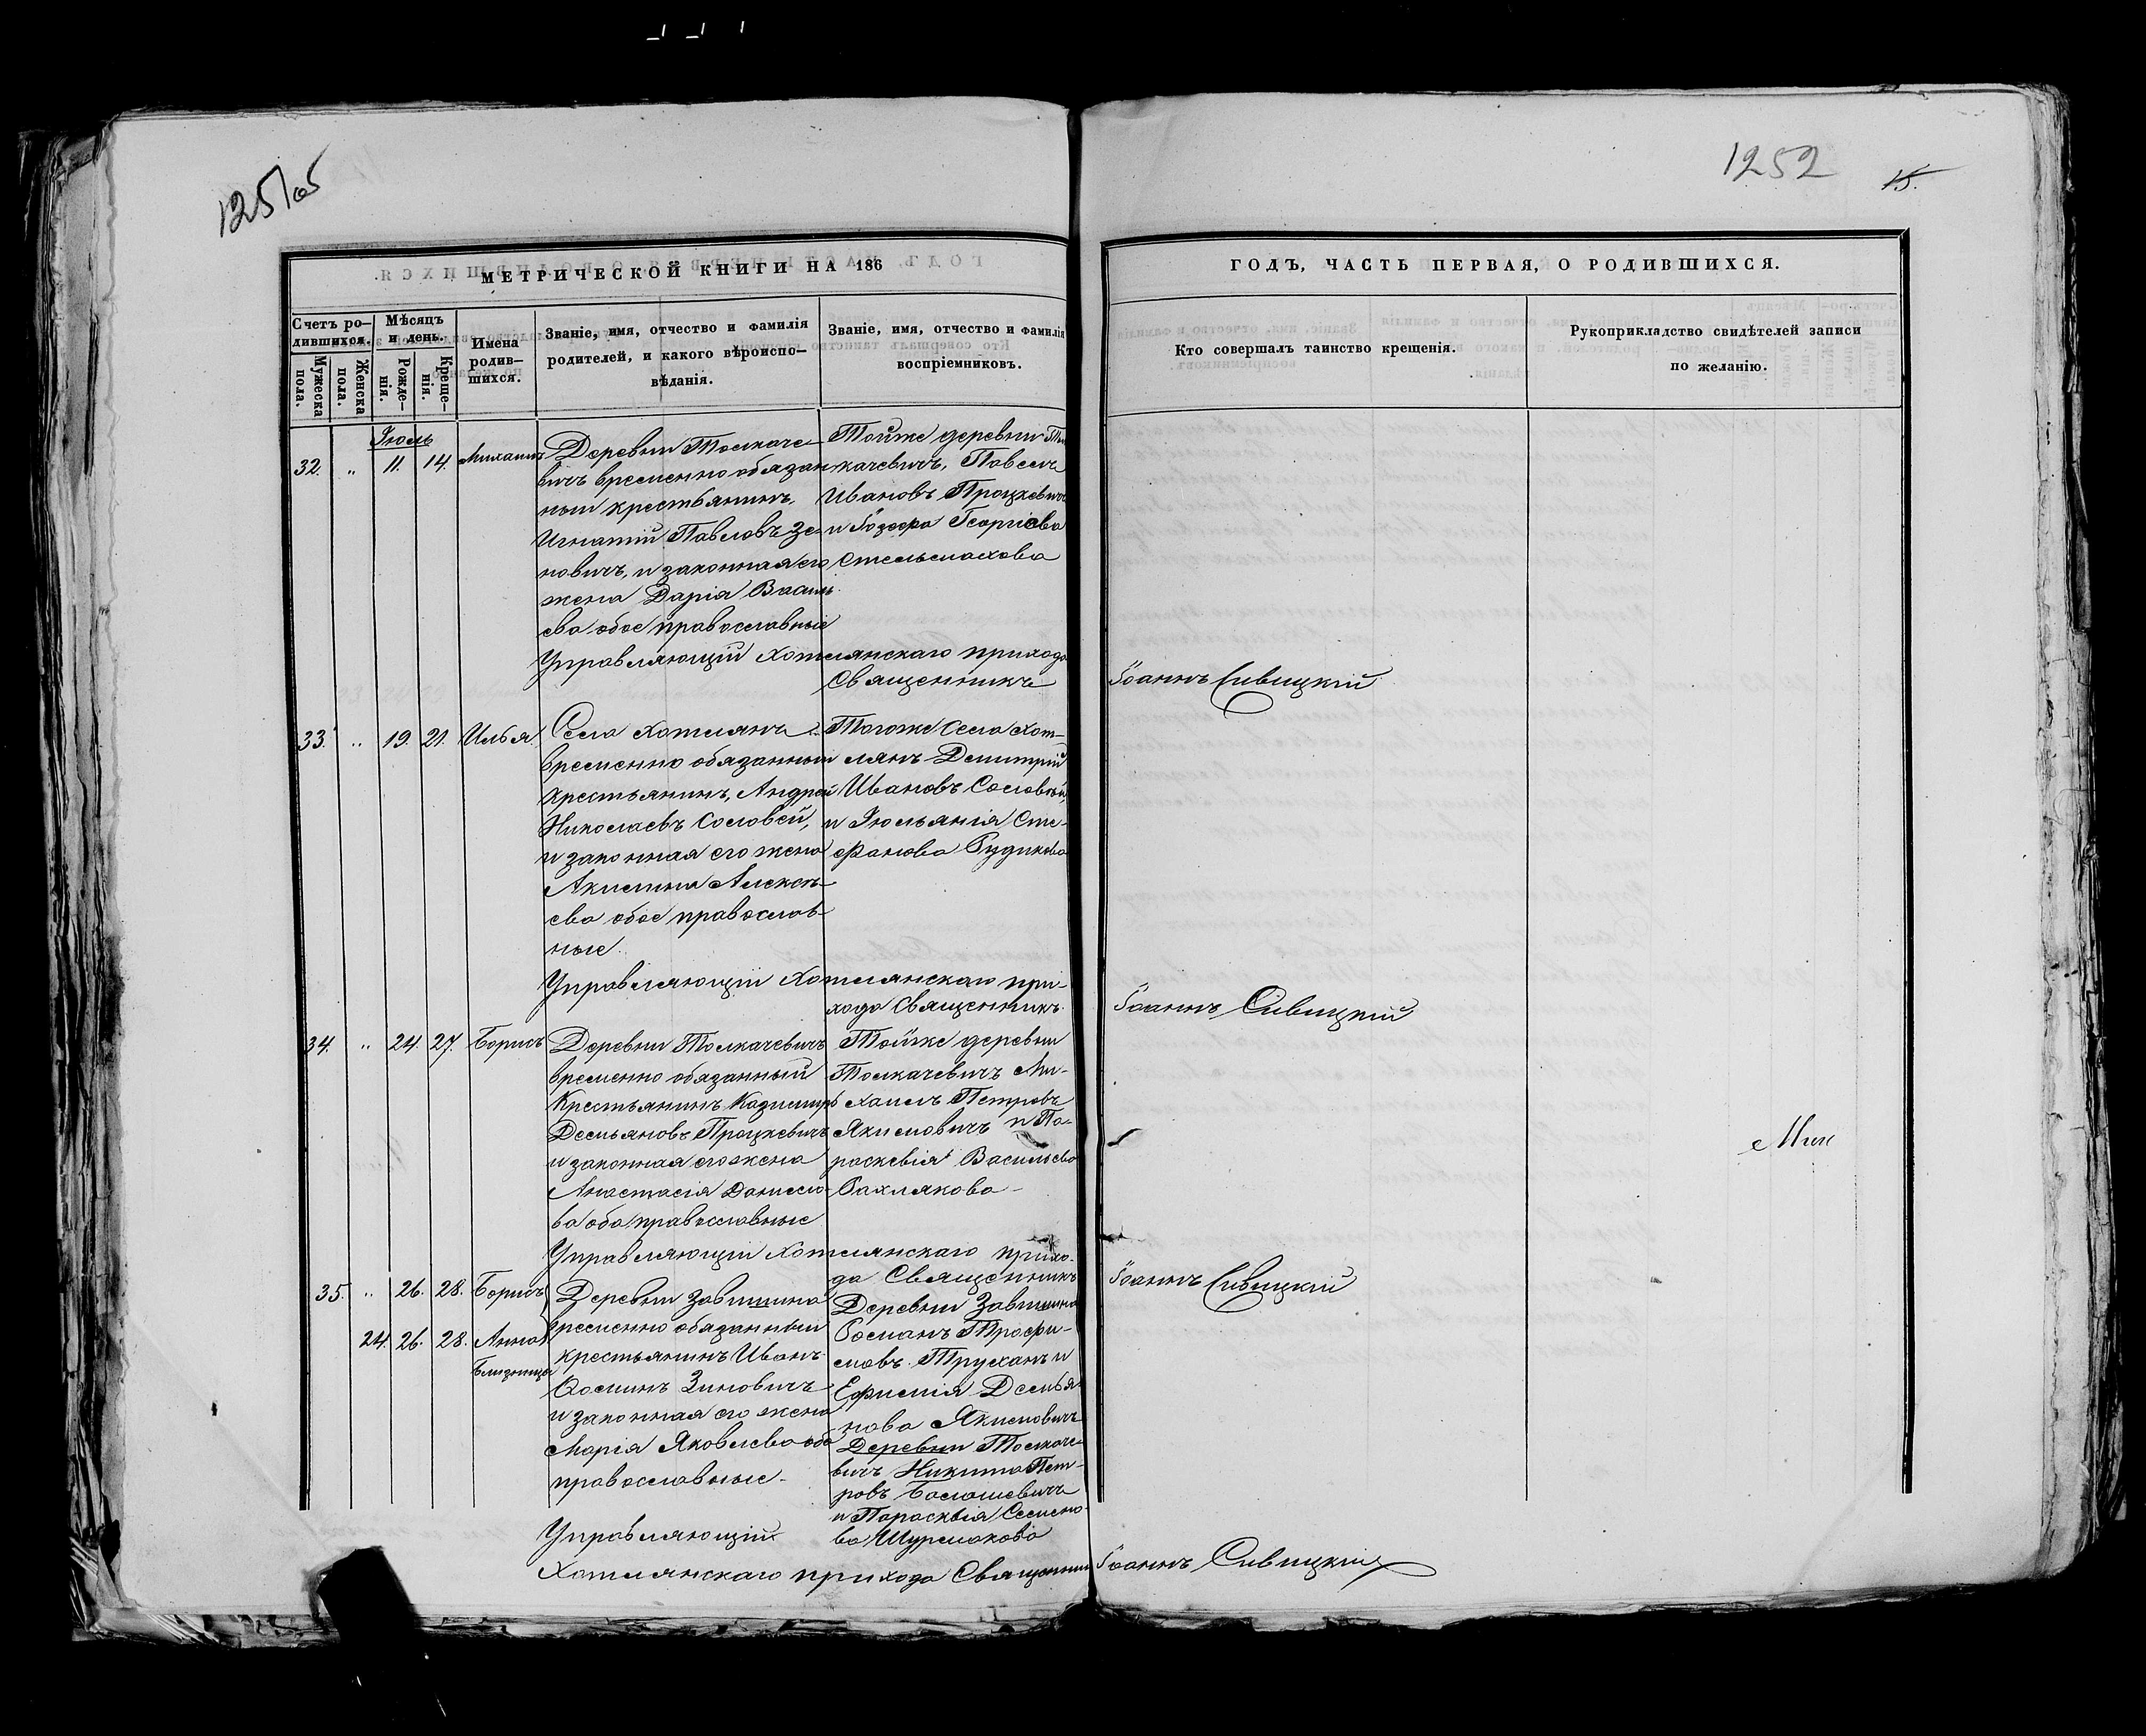 1251об
1252
15.
МЕТРИЧЕСКОЙ КНИГИ НА 186
ГОДЪ, ЧАСТЬ ПЕРВАЯ, О РОДИВШИХСЯ.
Счетъ ро-
дившихся.
Мужеска
пола.
Женска
пола.
Мѣсяцъ
и день.
Рожде-
нія.
Креще-
нія.
Имена
родив-
шихся.
Званіе, имя, отчество и фамилія
родителей, и какого вѣроиспо-
вѣданія.
Званіе, имя, отчество и фамилія
воспріемниковъ.
Кто совершалъ таинство крещенія.
Рукоприкладство свидѣтелей записи
по желанію.
Іюль
32. „ 11. 14. Михаилъ
Деревни Толкаче-
вичъ временно обязан-
ный крестьянинъ,
Игнатій Павловъ Зе-
новичъ, и законная его
жена Дарія Василь
ева обое православные
Тойже деревни Тол
качевичъ, Павелъ
Ивановъ Процкевичъ
и Іозефа Георгіева
Стельмахова
Управляющій Хотлянскаго прихода
Священникъ
Іоаннъ Сивицкій
33. „ 19. 21. Илья.
Села Хотлянъ
временно обязанный
крестьянинъ, Андрей
Николаевъ Соловей,
и законная его жена
Акилина Алексѣ-
ева обое православ-
ные.
Тогоже Села Хот-
лянъ Димитрій
Ивановъ Соловей,
и Іюльянія Сте-
фанова Рудикова
Управляющій Хотлянскаго при-
хода Священникъ
Іоаннъ Сивицкій
34. „ 24. 27. Борисъ
Деревни Толкачевичъ
временно обязанный
Крестьянинъ Казимиръ
Демьяновъ Процкевичъ
и законная его жена
Анастасія Данило-
ва оба православные
Тойже деревни
Толкачевичъ Ми-
хаилъ Петровъ
Якимовичъ и Па-
раскевія Васильева
Рахлякова
Мик
Управляющій Хотлянскаго прихо-
да Священникъ
Іоаннъ Сивицкій
35. „ 26. 28. Борисъ
24. 26. 28. Анна
Близнецы
Деревни Завшина
временно обязанный
крестьянинъ Иванъ
Зиновичъ
и законная его жена
Марія Яковлева оба
православные.
Деревни Завшина
Романъ Трофи-
мовъ Труханъ и
Ефимія Демья-
нова Якимовичъ
Деревни Толкаче-
вичъ Никита Пет-
ровъ Балашевичъ
и Параскевія Семено-
ва Шурмакова
Управляющій
Хотлянскаго прихода Священникъ
Іоаннъ Сивицкій